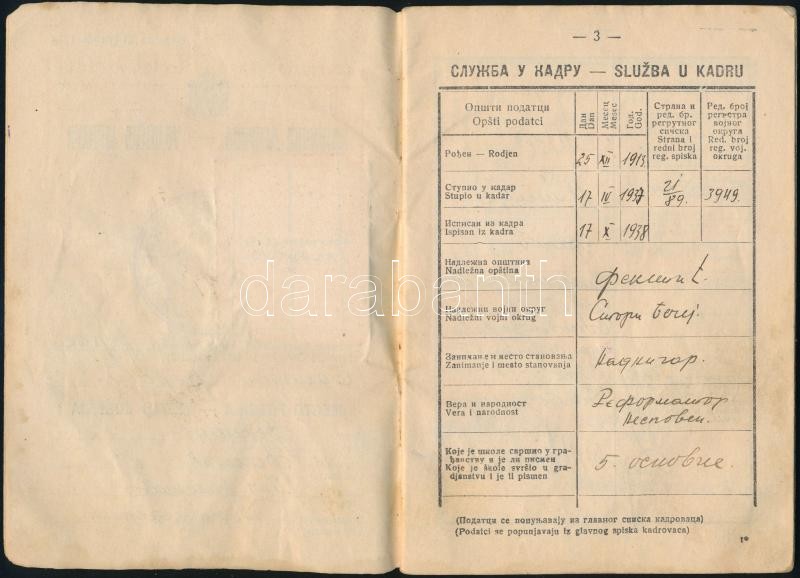 — 3 —
СЛУЖБА У КАДРУ — SLUŽBA U KADRU
Општи податци
Opšti podatci
Дан
Dan
Месец
Mesec
Год.
God.
Страна и
ред. бр.
регрутног
списка
Strana i
redni broj
reg. spiska
Ред. број
регистра
војног
округа
Red. broj
reg. voj.
okruga
Рођен — Rodjen
25 XII 1913
Ступио у кадар
Stupio u kadar
17 IV 1937 21/89. 3949.
Исписан из кадра
Ispisan iz kadra
17 X 1938
Надлежна општина
Nadležna opština
Надлежни војни округ
Nadležni vojni okrug
Стари Бечеј.
Занимање и место становања
Zanimanje i mesto stanovanja
Надничар.
Вера и народност
Vera i narodnost
Реформатор
Које је школе свршио у гра-
ђанству и је ли писмен
Koje je škole svršio u gra-
djanstvu i je li pismen
5. основне.
(Податци се попуњавају из главног списка кадроваца)
(Podatci se popunjavaju iz glavnog spiska kadrovaca)
1*
darabanth